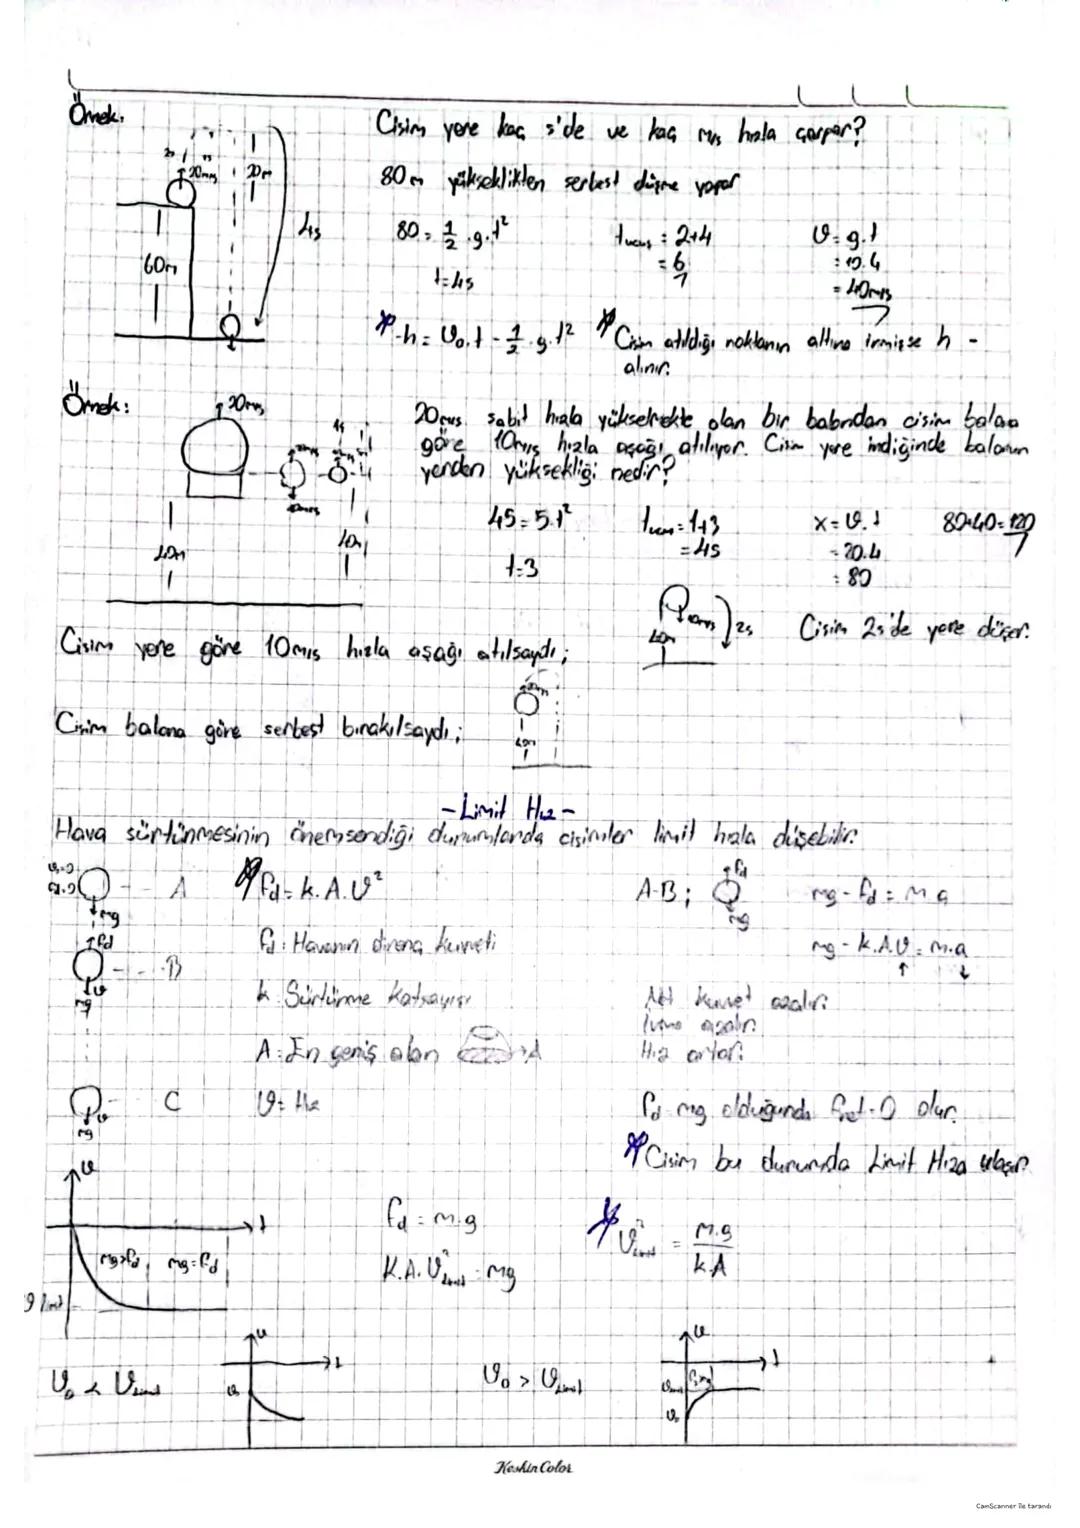 Örnek:
Cisim yere kaç s'de ve kaç m/s hızla çarpar?
20m/s
20m
80m yükseklikten serbest düşme yapar
4s
60m
80 = 1/2 .g.t²
t=4s
tuçuş : 2+4
= 6
V= g.t
: 10.4
= 40m/s
-h = V₀.t - 1/2 .g.t²
Cisim atıldığı noktanın altına inmişse h -
alınır.
Örnek:
20m/s
20m/s sabit hızla yükselmekte olan bir balondan cisim balona
göre 10m/s hızla aşağı atılıyor. Cisim yere indiğinde balonun
yerden yüksekliği nedir?
40m
45=5.t²
t=3
tuçuş=1+3
=4s
x= V.t
= 20.4
: 80
80+40=120
Cisim yere göre 10m/s hızla aşağı atılsaydı;
40m
10m/s
2s
Cisim 2s'de yere düşer.
Cisim balona göre serbest bırakılsaydı;
20m/s
40m
-Limit Hız-
Hava sürtünmesinin önemsendiği durumlarda cisimler limit hızla düşebilir.
A
mg
fd
B
mg
V
C
V
mg
fd= k.A.V²
fd: Havanın direnç kuvveti
k: Sürtünme Katsayısı
A: En geniş alan
A
V= Hız
A-B;
fd
mg
mg - fd = m.a
mg - k.A.V = m.a
Net kuvvet azalır.
İvme azalır.
Hız artar.
fd mg olduğunda fnet=0 olur.
Cisim bu durumda Limit Hıza ulaşır.
V
t
mg>fd
mg=fd
V limit
fd = m.g
K.A.V²limit = mg
V²limit = m.g / k.A
V₀ < Vlimit
V
t
V₀
V₀ > Vlimit
V
t
Vlimit
V₀
Keskin Color
CamScanner ile tarandı